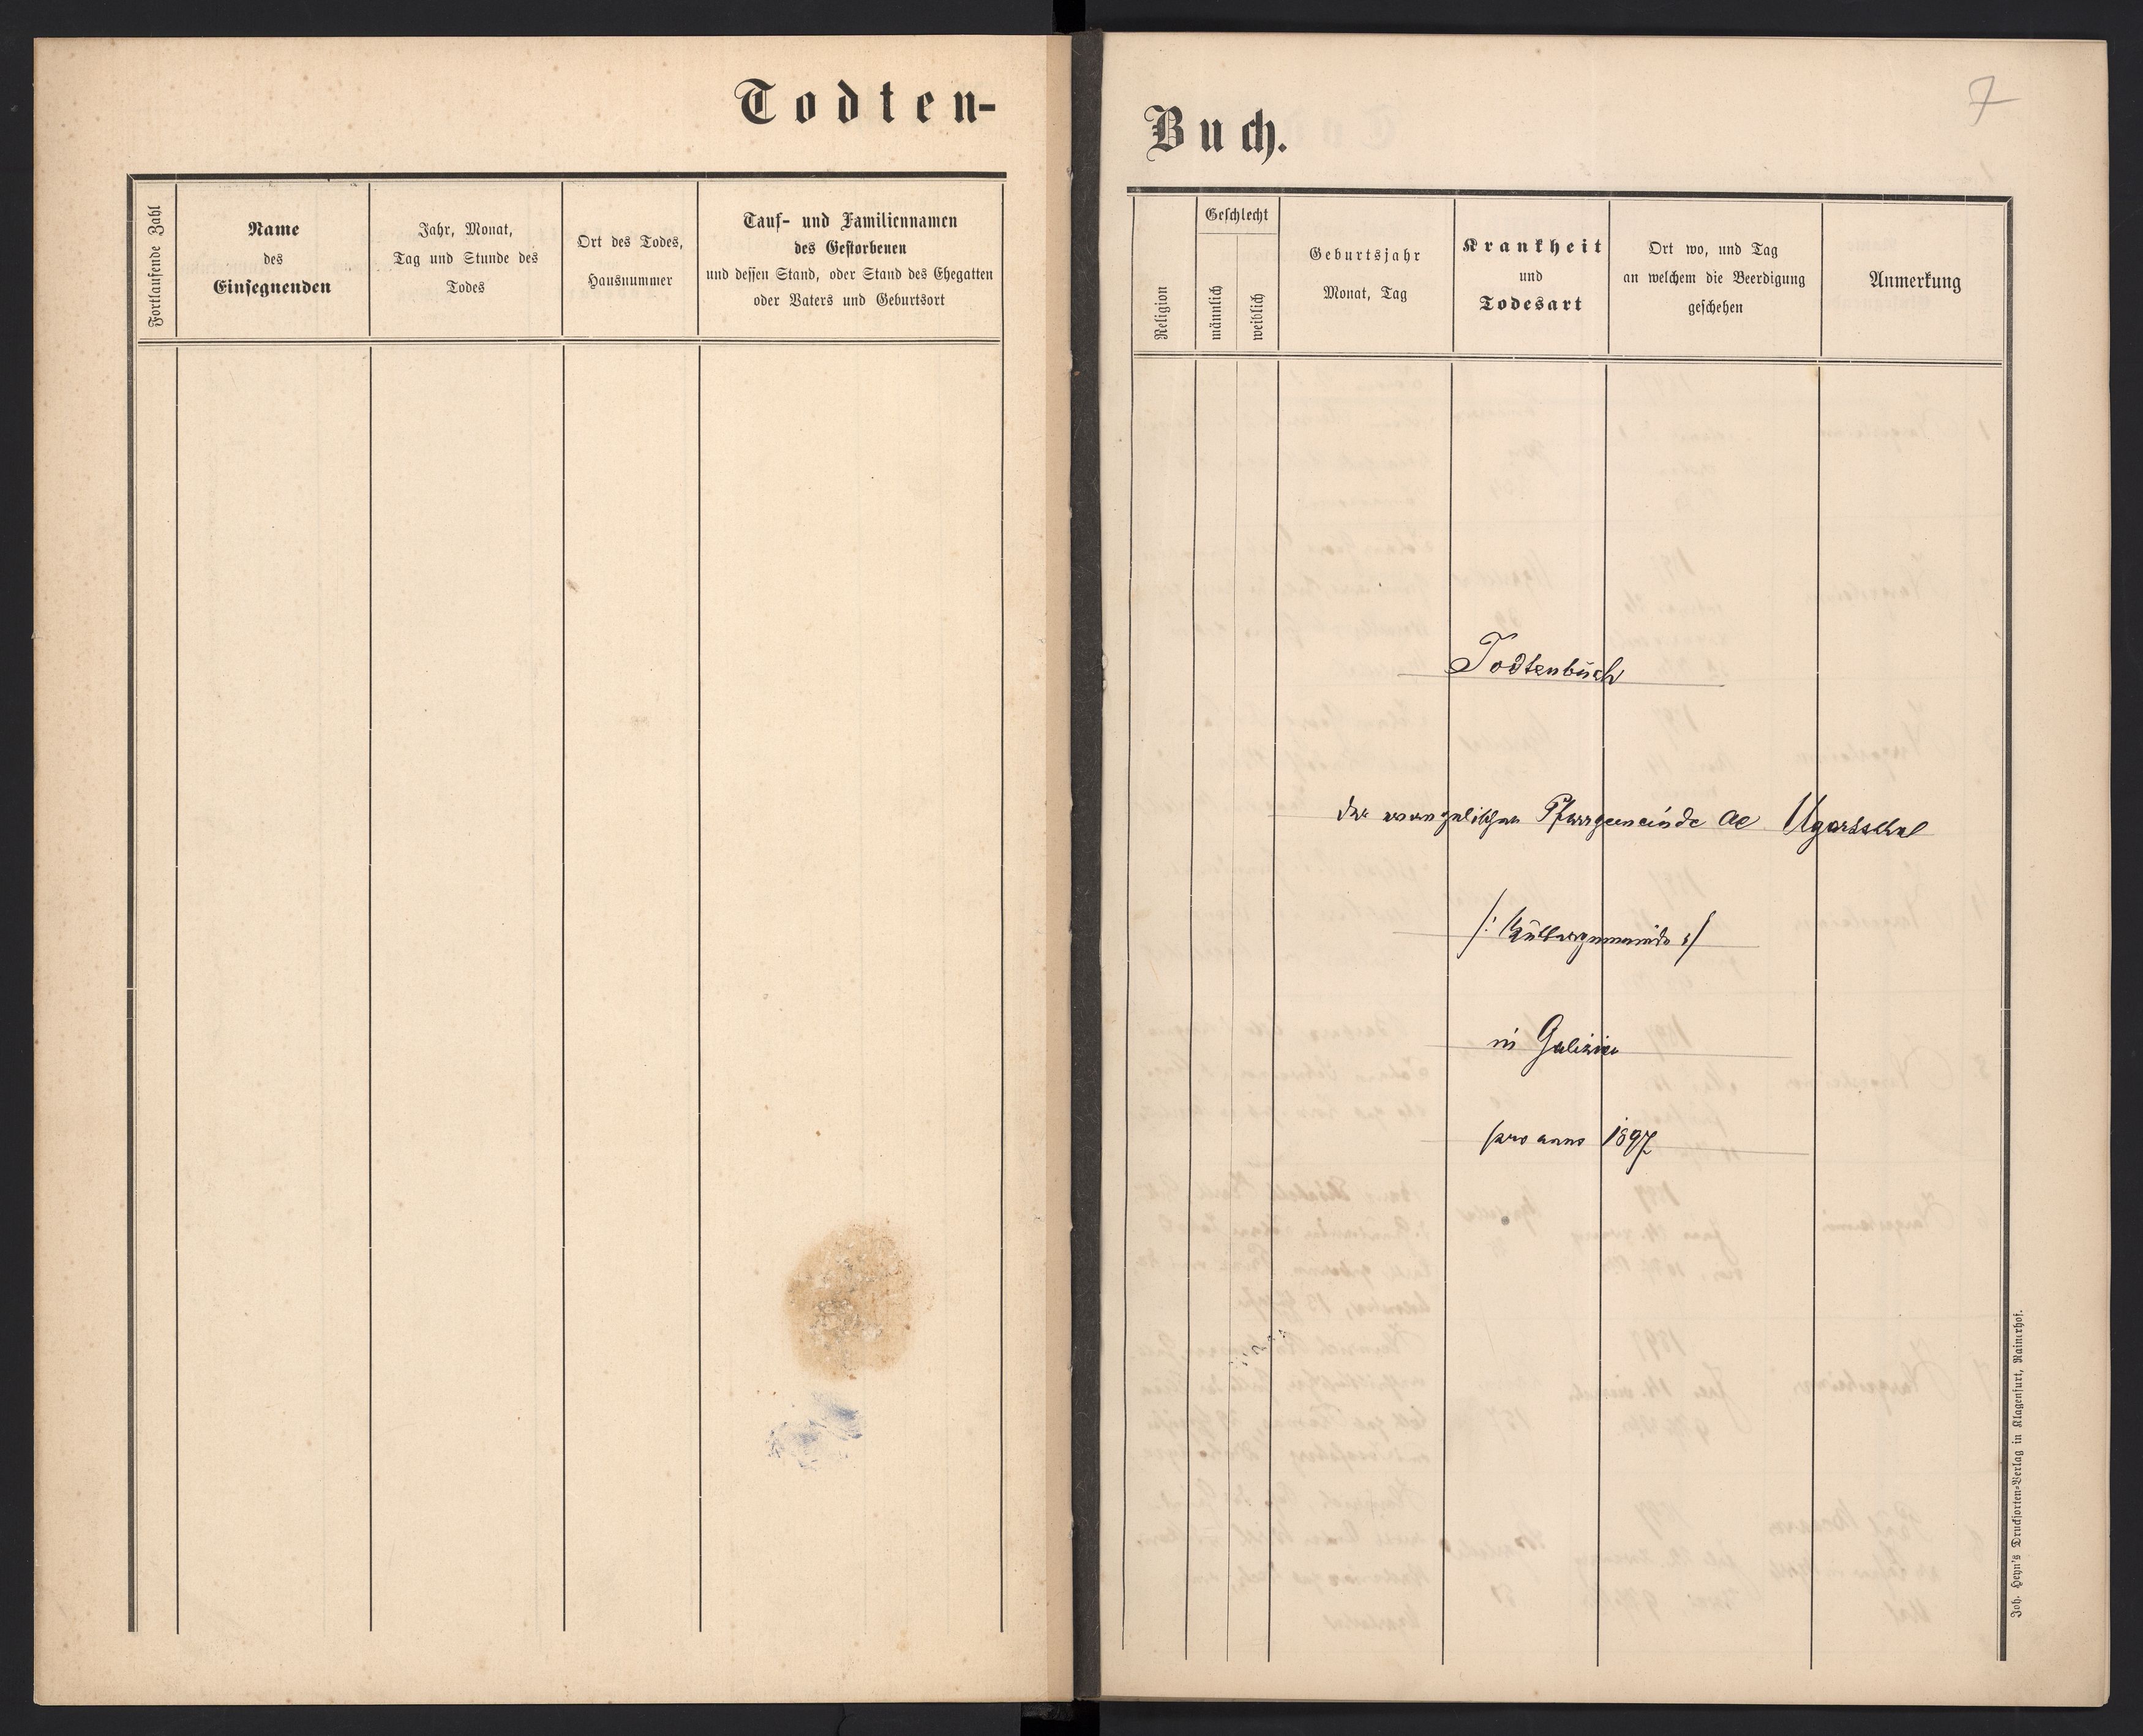 Todten-
Fortlaufende Zahl
Name
des
Einsegnenden
Jahr, Monat,
Tag und Stunde des
Todes
Ort des Todes,
Hausnummer
Tauf- und Familiennamen
des Gestorbenen
und dessen Stand, oder Stand des Ehegatten
oder Vaters und Geburtsort
7
Buch.
Religion
Geschlecht
männlich
weiblich
Geburtsjahr
Monat, Tag
Krankheit
und
Todesart
Ort wo, und Tag
an welchem die Beerdigung
geschehen
Anmerkung
Todtenbuch
der evangelischen Pfarrgemeinde AC Ugartsthal
/: Muttergemeinde :/
in Galizien
pro anno 1897
Joh. Heyn's Drucksorten-Verlag in Klagenfurt, Rainerhof.